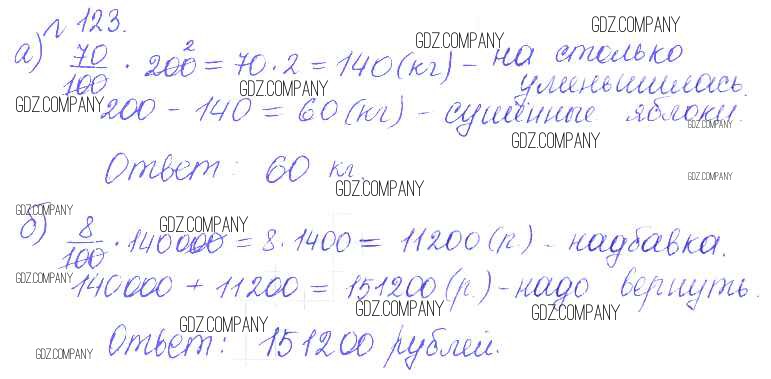 № 123.
GDZ.COMPANY
GDZ.COMPANY
а) 70/100 · 200 2 = 70 · 2 = 140 (кг) – на столько
уменьшилась.
GDZ.COMPANY
GDZ.COMPANY
200 – 140 = 60 (кг) – сушённые яблоки.
GDZ.COMPANY
GDZ.COMPANY
Ответ: 60 кг.
GDZ.COMPANY
GDZ.COMPANY
GDZ.COMPANY
GDZ.COMPANY
б) 8/100 · 140000 = 8 · 1400 = 11200 (р.) – надбавка.
GDZ.COMPANY
140000 + 11200 = 151200 (р.) – надо вернуть.
GDZ.COMPANY
GDZ.COMPANY
GDZ.COMPANY
GDZ.COMPANY
Ответ: 151200 рублей.